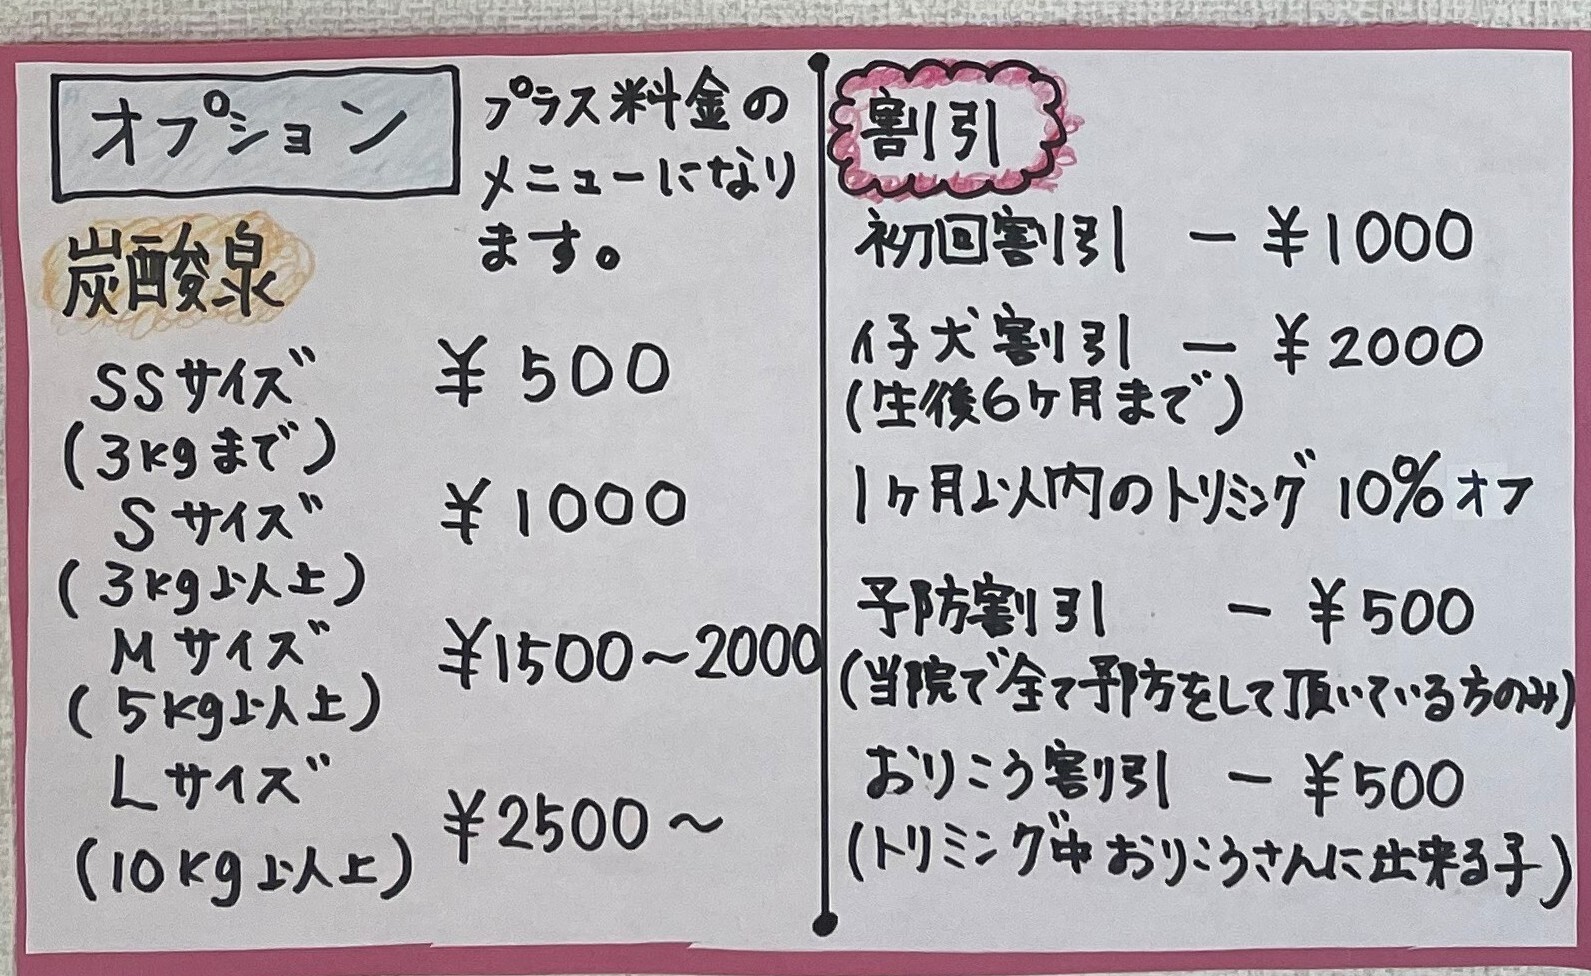 オプション
プラス料金の
メニューになり
ます。
炭酸泉
SSサイズ ¥500
(3kgまで)
Sサイズ ¥1000
(3kg以上)
Mサイズ ¥1500~2000
(5kg以上)
Lサイズ ¥2500~
(10kg以上)
割引
初回割引 ー ¥1000
仔犬割引 ー ¥2000
(生後6ヶ月まで)
1ヶ月以内のトリミング 10%オフ
予防割引 ー ¥500
(当院で全て予防をして頂いている方のみ)
おりこう割引 ー ¥500
(トリミング中おりこうさんに出来る子)